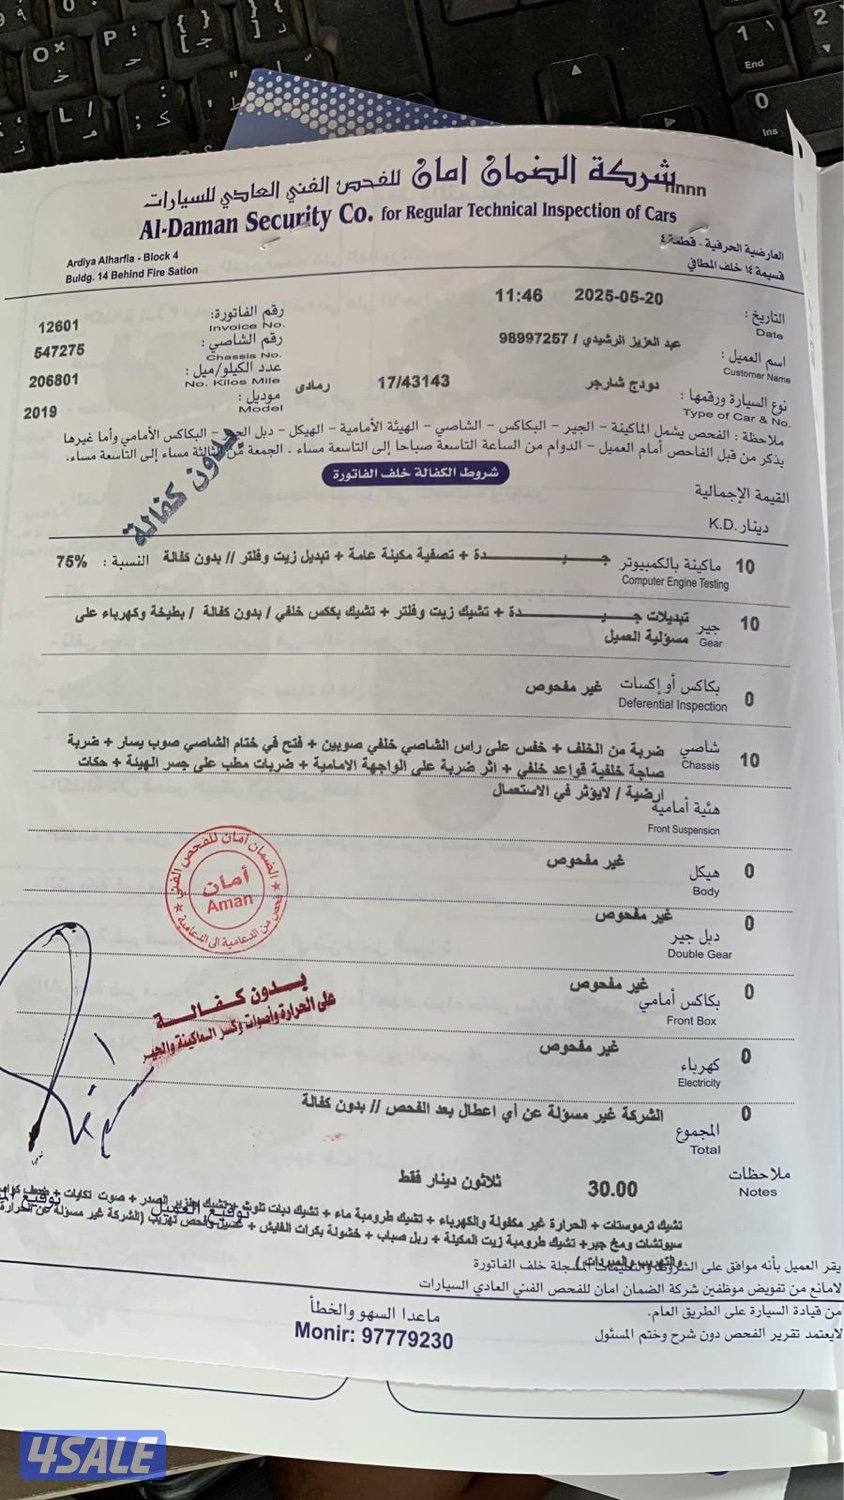 شركة الضمان امان للفحص الفني العادي للسيارات
nnnn
Al-Daman Security Co. for Regular Technical Inspection of Cars
العارضية الحرفية - قطعة ٤
قسيمة ١٤ خلف المطافي
Ardiya Alharfia - Block 4
Buldg. 14 Behind Fire Sation
التاريخ :
Date
2025-05-20 11:46
رقم الفاتورة:
Invoice No.
12601
اسم العميل :
Customer Name
عبد العزيز الرشيدي / 98997257
رقم الشاصي :
Chassis No.
547275
عدد الكيلو/ميل :
No. Kilos Mile
206801
نوع السيارة ورقمها :
Type of Car & No.
دودج شارجر 17/43143 رمادي
موديل :
Model
2019
ملاحظة : الفحص يشمل الماكينة - الجير - البكاكس - الشاصي - الهيئة الأمامية - الهيكل - دبل الجير - البكاكس الأمامي وأما غيرها
يذكر من قبل الفاحص أمام العميل - الدوام من الساعة التاسعة صباحا إلى التاسعة مساء . الجمعة من الثالثة مساء إلى التاسعة مساء.
شروط الكفالة خلف الفاتورة
بدون كفالة
القيمة الإجمالية
دينار K.D.
10 ماكينة بالكمبيوتر
Computer Engine Testing
جـيـــدة + تصفية مكينة عامة + تبديل زيت وفلتر // بدون كفالة النسبة : 75%
10 جير
Gear
تبديلات جـيـــدة + تشيك زيت وفلتر + تشيك بككس خلفي / بدون كفالة / بطيخة وكهرباء على
مسؤلية العميل
0 بكاكس أو إكسات
Deferential Inspection
غير مفحوص
10 شاصي
Chassis
ضربة من الخلف + خفس على راس الشاصي خلفي صوبين + فتح في ختام الشاصي صوب يسار + ضربة
صاجة خلفية قواعد خلفي + اثر ضربة على الواجهة الامامية + ضربات مطب على جسر الهيئة + حكات
ارضية / لايؤثر في الاستعمال
هيئة أمامية
Front Suspension
0 هيكل
Body
غير مفحوص
0 دبل جير
Double Gear
غير مفحوص
0 بكاكس أمامي
Front Box
غير مفحوص
0 كهرباء
Electricity
غير مفحوص
0 المجموع
Total
الشركة غير مسؤلة عن أي اعطال بعد الفحص // بدون كفالة
الضمان امان للفحص الفني
أمان
Aman
فحص من الدعامية الى الدعامية
بدون كفالة
على الحرارة وأصوات وكسر الماكينة والجير
ملاحظات
Notes
30.00 ثلاثون دينار فقط
تشيك ترموستات + الحرارة غير مكفولة والكهرباء + تشيك طرومبة ماء + تشيك دبات تلوث + تشيك بطزير الصدر + صوت تكايات +
سيوتشات ومخ جير+ تشيك طرومبة زيت المكينة + ربل صباب + خشونة بكرات القايش + غسيل وفحص تهريب (الشركة غير مسؤلة عن الحرارة
والتهريب والمبردات /
توقيع العميل
يقر العميل بأنه موافق على الشروط والتعليمات المسجلة خلف الفاتورة
لامانع من تفويض موظفين شركة الضمان امان للفحص الفني العادي السيارات
من قيادة السيارة على الطريق العام.
لايعتمد تقرير الفحص دون شرح وختم المسئول
ماعدا السهو والخطأ
Monir: 97779230
4SALE